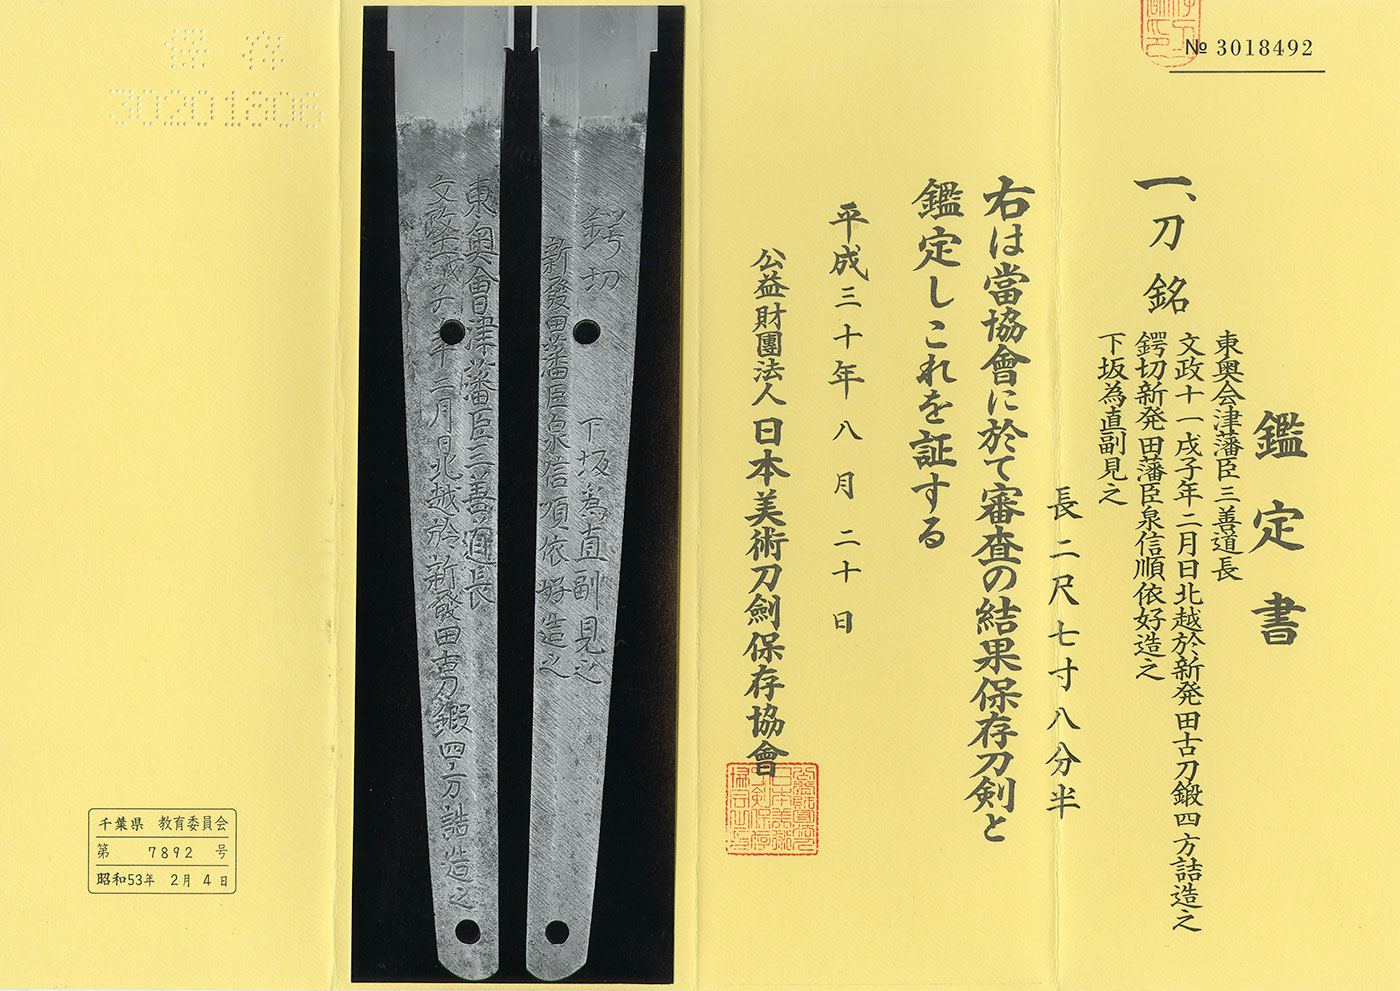 № 3018492
鑑定書
一、刀 銘
東奥会津藩臣三善道長
文政十一戌子年二月日北越於新発田古刀鍛四方詰造之
鍔切新発田藩臣泉信順依好造之
下坂為直副見之
長二尺七寸八分半
右は當協會に於て審査の結果保存刀剣と
鑑定しこれを証する
平成三十年八月二十日
公益財團法人日本美術刀劍保存協會
鍔切 下坂為直副見之
新發田藩臣泉信順依好造之
東奥會津藩臣三善道長
文政十一戌子年二月日北越於新發田古刀鍛四方詰造之
保存
30201806
千葉県 教育委員会
第 7892 号
昭和53年 2月 4日